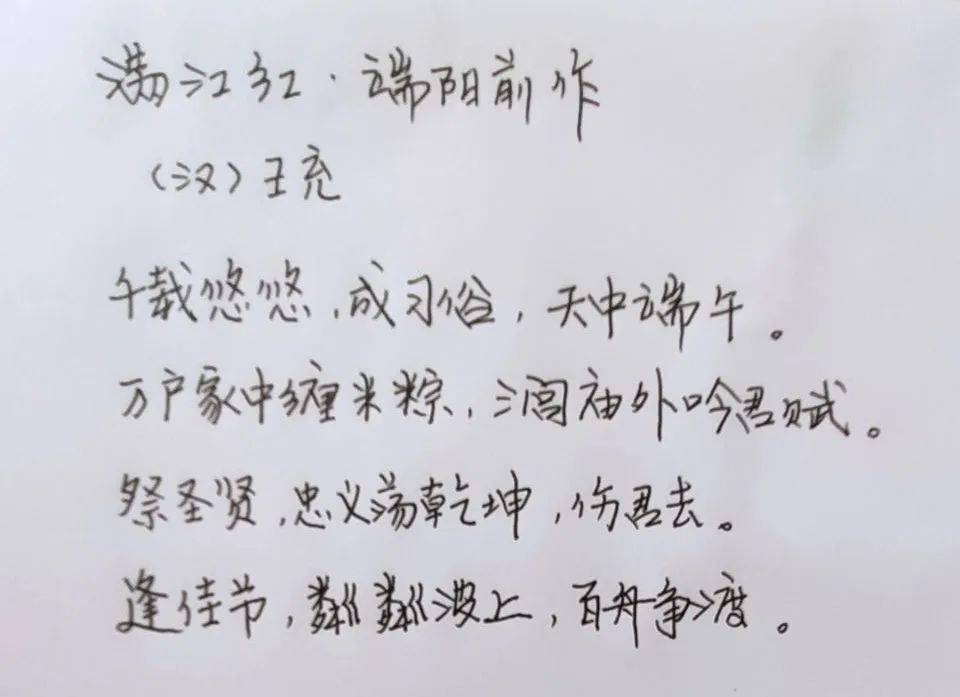 满江红·端阳前作
（汉）王充
千载悠悠，成习俗，天中端午。
万户家中缠米粽，汨罗庙外吟君赋。
祭圣贤，忠义荡乾坤，伤君去。
逢佳节，粼粼波上，百舟争渡。